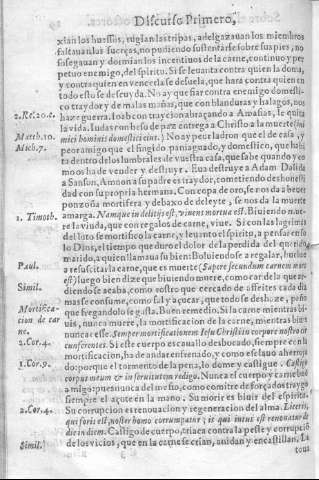 Discurso Primero,
xian los huessos, rugian las tripas, adelgazauan los miembros
faltauan las fuerças, no pudiendo sustentarse sobre sus pies, no
sossegauan y domian los incentiuos de la carne, continuo y per-
petuo enemigo, del spiritu. Si se leuanta contra quien la doma,
y contra quien en vencerla se desuela, que hará contra quien en
todo esto se descuyda. No ay que fiar contra enemigo domesti-
co traydor y de malas mañas, que con blanduras y halagos, nos
2. Re. 20. c. haze guerra. Ioab con traycion abraçando a Amasias, le quita
la vida. Iudas con beso de paz entrega a Christo a la muerte (ini
Matth. 10. mici hominis domestici eius.) No ay peor ladron que el de casa, y
Mich. 7. peor amigo que el fingido paniaguado, y domestico, que habi
ta dentro de los lumbrales de vuestra casa, que sabe quando y co
mo os ha de vender y destruyr. Eua destruye a Adam Dalida
a Sanson, Amnon a su padre es traydor, cometiendo deshonesti
dad con su propria hermana. Con copa de oro, se nos da a beuer
ponzoña mortifera y debaxo de deleyte, se nos da la muerte
1. Timoth. amarga. Namque in delitijs est, viuens mortua est. Biuiendo mue-
re la viuda, que con regalos de carne, viue. Si con las lagrimas
del luto se mortifico la carne, y leuanto el spiritu, a pensar en so
lo Dios, el tiempo que duro el dolor de la perdida del querido
marido, a quien llamaua su bien: Boluiendose a regalar, buelue
Paul. a resuscitar la carne, que es muerte (Sapere secundum carnem mors
est) luego bien dize que biuiendo muere, como candela que ar-
Simil. diendo se acaba, como rostro que cercado de afeites cada dia
mas se consume, como sal y açucar, que todo se deshaze, paño
Mortifica- que fregandolo se gasta. Buen remedio. Si la carne mientras bi-
cion de car uis, nunca muere, la mortificacion de la carne, mientras biuis
ne. nunca cesse. Semper mortificationem Iesu Christi in corpore nostro cir
2. Cor. 4. cunferentes. Si este cuerpo es cauallo desbocado, siempre con la
mortificacion, ha de andar enfrenado, y como esclauo aherroja
1. Cor. 9. do: porque el tormento de la pena, lo dome y castigue. Castigo
corpus meum et in seruitutem redigo. Nunca el cuerpo y carne biue
a migo: pues nunca del mesmo, como comitre de forçados traygo
siempre el açote en la mano. Su morir es biuir del espiritu.
2. Cor. 4. Su corrupcion es renouacion y regeneracion del alma. Licet is,
qui foris est, noster homo corrumpatur; is qui intus est renouatur de
die in diem. Castigo de cuerpo, triaca contra la peste y corrupcio
Simil. de los vicios, que en la carne se crian, anidan y encastillan. La